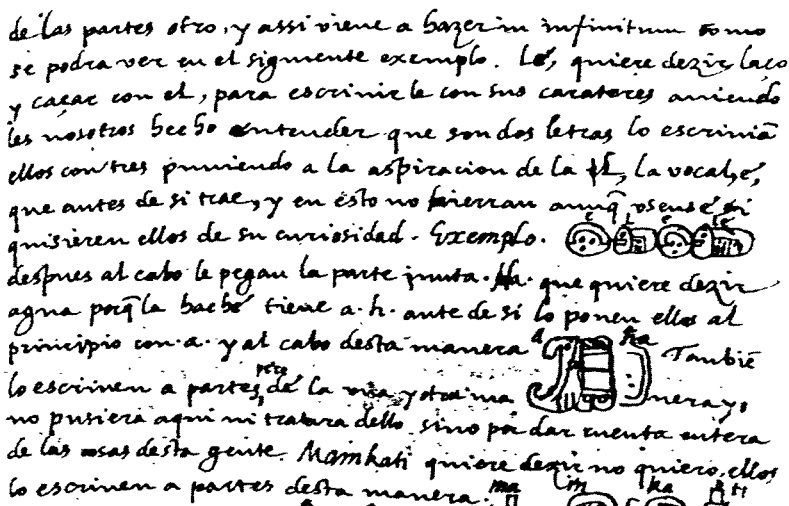 de las partes otro, y assi viene a hazer in infinitum como
se podra ver en el siguiente exemplo. Lé, quiere dezir laço
y caçar con el, para escrivirle con sus carateres aviendo
les nosotros hecho entender que son dos letras lo escrivian
ellos con tres puniendo a la aspiracion de la l, la vocal, é,
que antes de si trae, y en esto no hierran aunq̃ usense, si
quisieren ellos de su curiosidad. Exemplo. e l e lé
despues al cabo le pegan la parte junta. Ha. que quiere dezir
agua porq̃ la haché tiene a. h. ante de si lo ponen ellos al
principio con. a. y al cabo desta manera a ha Tambiē
lo escriven a partes, pero de la una y otra ma nera y,
no pusiera aqui ni tratara dello sino por dar cuenta entera
de las cosas desta gente. Mainkati quiere dezir no quiero, ellos
lo escriven a partes desta manera: ma in ka ti